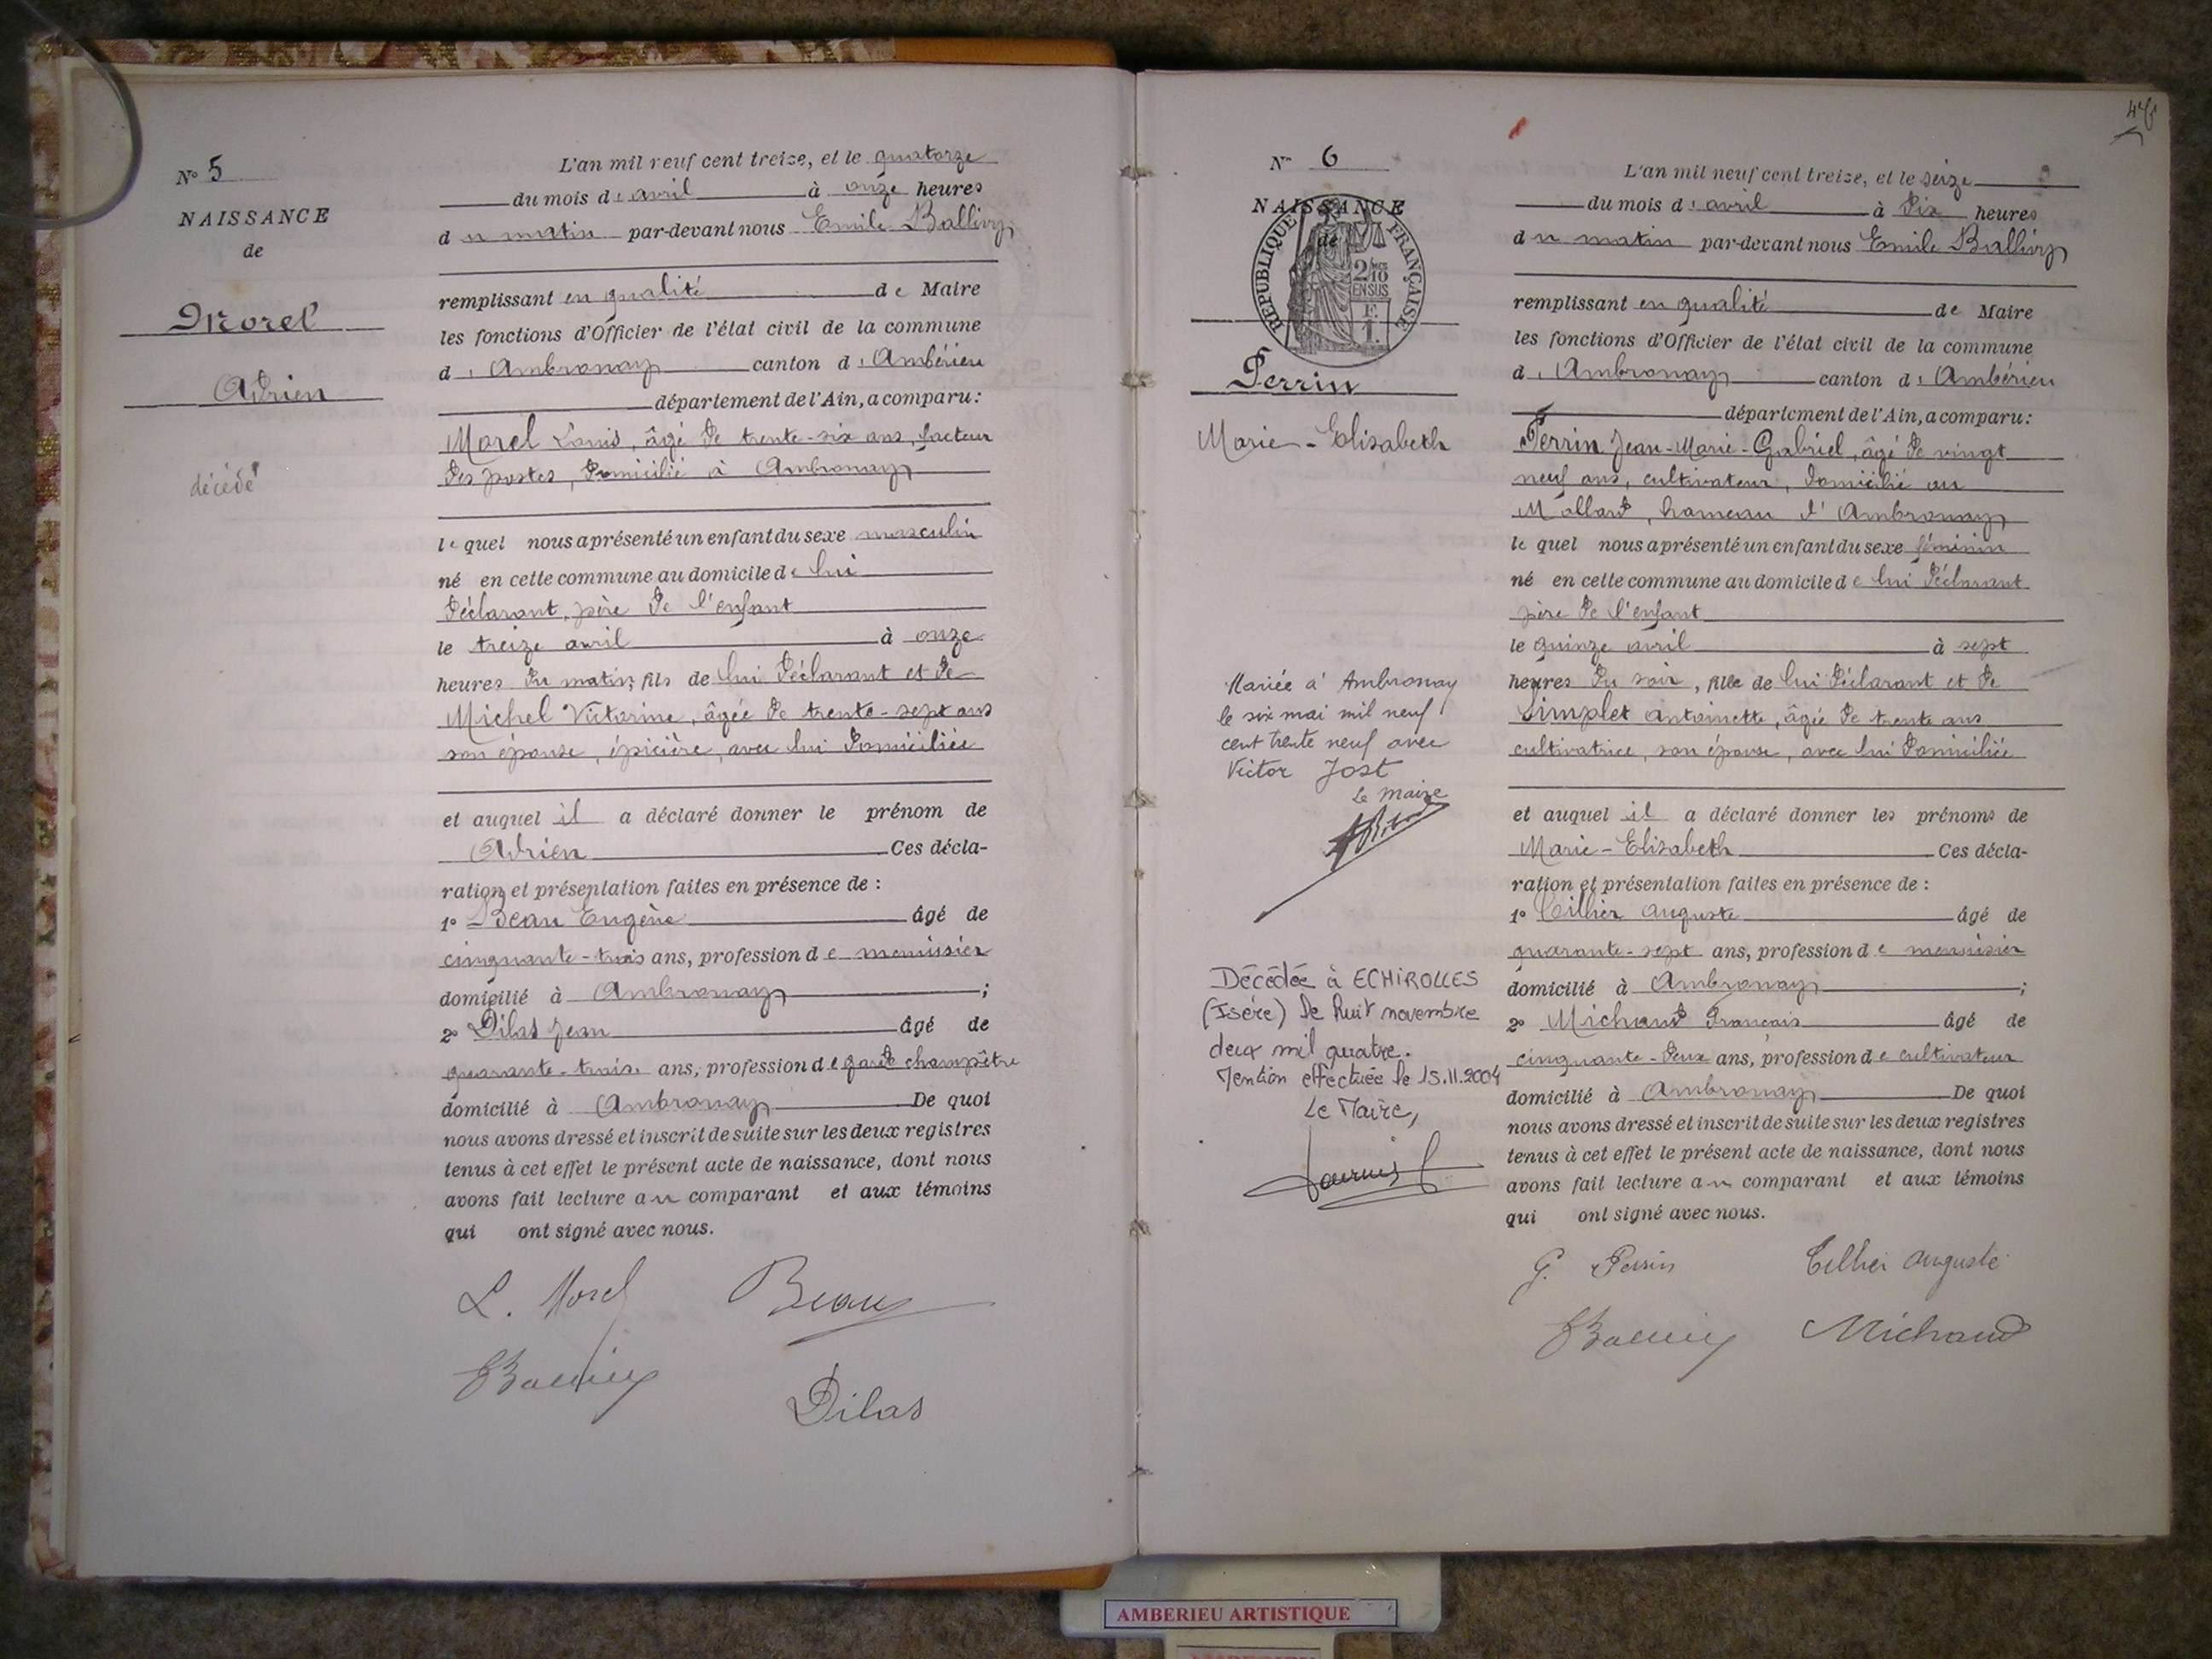 N° 5
NAISSANCE
de
Morel
Adrien
décédé
L'an mil neuf cent treize, et le quatorze
du mois d'avril à onze heures
du matin par-devant nous Emile Ballivy
remplissant en qualité de Maire
les fonctions d'Officier de l'état civil de la commune
d'Ambronay canton d'Ambérieu
département de l'Ain, a comparu :
Morel Louis, âgé de trente-six ans, facteur
des postes, domicilié à Ambronay
le quel nous a présenté un enfant du sexe masculin
né en cette commune au domicile de lui
déclarant, père de l'enfant
le treize avril à onze
heures du matin, fils de lui déclarant et de
Michel Victorine, âgée de trente-sept ans
son épouse, épicière, avec lui domiciliée
et auquel il a déclaré donner le prénom de
Adrien Ces décla-
ration et présentation faites en présence de :
1° Beau Eugène âgé de
cinquante-trois ans, profession de menuisier
domicilié à Ambronay ;
2° Dilas Jean âgé de
quarante-trois ans, profession de garde champêtre
domicilié à Ambronay De quoi
nous avons dressé et inscrit de suite sur les deux registres
tenus à cet effet le présent acte de naissance, dont nous
avons fait lecture au comparant et aux témoins
qui ont signé avec nous.
L. Morel Beau
EBallivy
Dilas
N° 6
NAISSANCE
de
RÉPUBLIQUE FRANÇAISE
2/10
EN SUS
Perrin
Marie-Elisabeth
Mariée à Ambronay
le six mai mil neuf
cent trente neuf avec
Victor Jost
Le maire
Décédée à ECHIROLLES
(Isère) le huit novembre
deux mil quatre.
Mention effectuée le 15.11.2004
Le Maire,
L'an mil neuf cent treize, et le seize
du mois d'avril à dix heures
du matin par-devant nous Emile Ballivy
remplissant en qualité de Maire
les fonctions d'Officier de l'état civil de la commune
d'Ambronay canton d'Ambérieu
département de l'Ain, a comparu :
Perrin Jean-Marie-Gabriel, âgé de vingt
neuf ans, cultivateur, domicilié au
Mollard, hameau d'Ambronay
le quel nous a présenté un enfant du sexe féminin
né en cette commune au domicile de lui déclarant
père de l'enfant
le quinze avril à sept
heures du soir, fille de lui déclarant et de
Simplet Antoinette, âgée de trente ans
cultivatrice, son épouse, avec lui domiciliée
et auquel il a déclaré donner les prénoms de
Marie-Elisabeth Ces décla-
ration et présentation faites en présence de :
1° Tillier Auguste âgé de
quarante-sept ans, profession de menuisier
domicilié à Ambronay ;
2° Michaud François âgé de
cinquante-deux ans, profession de cultivateur
domicilié à Ambronay De quoi
nous avons dressé et inscrit de suite sur les deux registres
tenus à cet effet le présent acte de naissance, dont nous
avons fait lecture au comparant et aux témoins
qui ont signé avec nous.
G. Perrin Tillier Auguste
EBallivy Michaud
AMBERIEU ARTISTIQUE